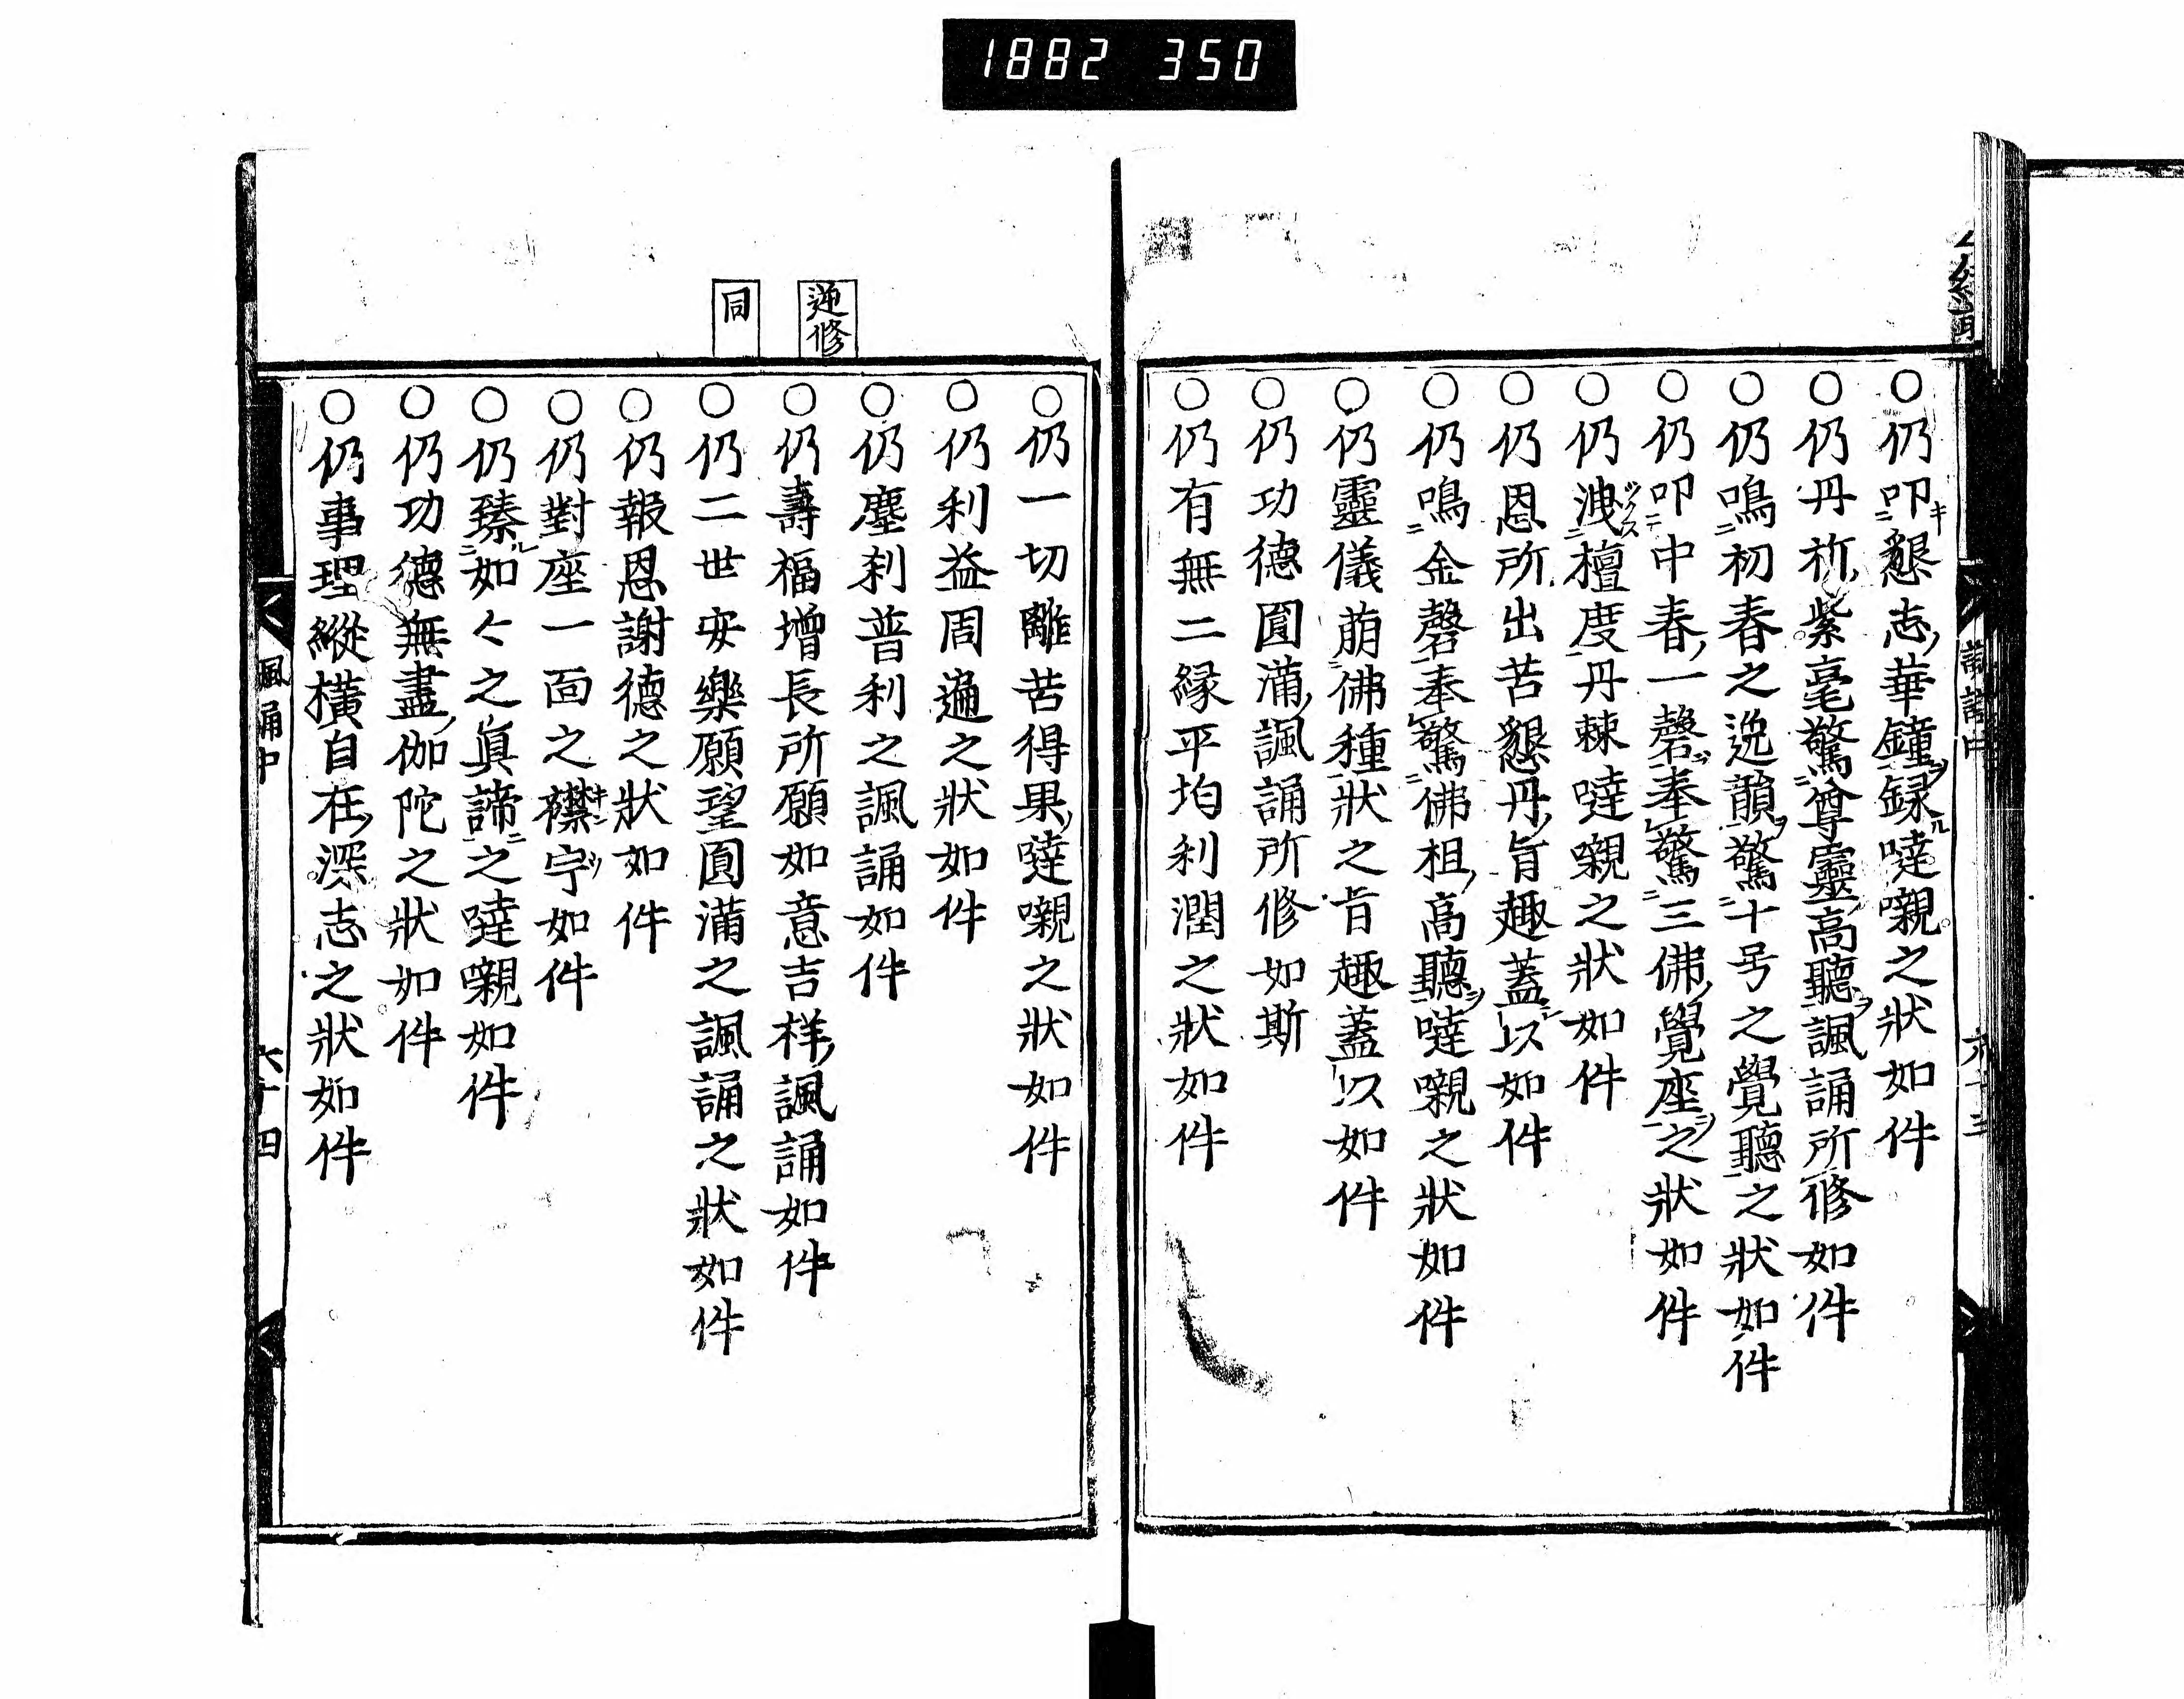 1882 350
○仍叩懇志華鐘録噠嚫之状如件
○仍丹祈紫毫驚尊靈高聽諷誦所修如件
○仍鳴初春之逸韻驚十号之覺聽之状如件
○仍叩中春一磬奉驚三佛覺座之状如件
○仍洩檀度丹棘噠嚫之状如件
○仍恩所出苦懇丹旨趣蓋以如件
○仍鳴金磬奉驚佛祖高聽噠嚫之状如件
○仍靈儀萠佛種状之旨趣蓋以如件
○仍功德圓滿諷誦所修如斯
○仍有無二縁平均利潤之状如件
○仍一切離苦得果噠嚫之状如件
○仍利益周遍之状如件
○仍塵刹普利之諷誦如件
逆修
○仍壽福增長所願如意吉样諷誦如件
同
○仍二世安樂願望圓滿之諷誦之状如件
○仍報恩謝德之状如件
○仍對座一面之襟宇如件
○仍臻如々之眞諦之噠嚫如件
○仍功德無盡伽陀之状如件
○仍事理縱橫自在深志之状如件
諷誦中
六十四